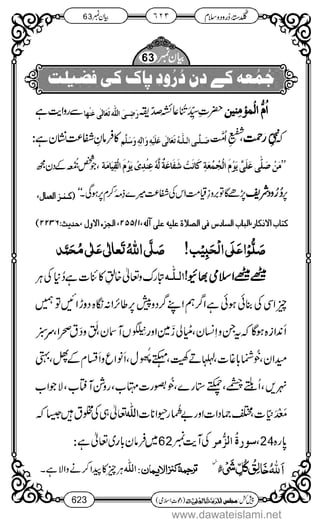 گلدستہ دُرود و سلام ٦٢٣ بیان نمبر63
بیان نمبر 63
جُمُعہ کے دن دُرُودِ پاک کی فضیلت
اُمُّ الْمُؤمِنِین حضرتِ سیِّدَتُنا عائشہ صدّیقہ رَضِیَ اللّٰہُ تَعَالٰی عَنْہا سے روایت ہے
کہ نبیِّ رحمت، شفیعِ اُمَّت صَلَّی اللّٰہُ تَعَالٰی عَلَیْہِ وَاٰلِہٖ وَسَلَّم کا فرمانِ شفاعت نشان ہے:
”مَنْ صَلّٰی عَلَیَّ یَوْمَ الْجُمُعَۃِ کَانَتْ شَفَاعَۃٌ لَّہٗ عِنْدِیْ یَوْمَ الْقِیَامَۃِ، جو شخص جُمُعہ کے دن مجھ
پر دُرُود شریف پڑھے گا تو بروزِ قیامت اس کی شفاعت میرے ذمۂ کرم پر ہوگی۔“ (کنز العمال،
کتاب الاذکار، الباب السادس فی الصلاۃ علیہ علی آلہ، ١/٢٥٥، الجزء الاول، حدیث: ٢٢٣٦)
صَلُّوْا عَلَی الْحَبِیْب! صَلَّی اللّٰہُ تَعَالٰی عَلٰی مُحَمَّد
میٹھے میٹھے اسلامی بھائیو! اللّٰہ تبارک وتعالٰی خالقِ کائنات ہے دُنیا کی ہر
چیز اسی کی بنائی ہوئی ہے اگر ہم اپنے گِرد وپیش پر طائرانہ نگاہ دوڑائیں تو ہمیں
اندازہ ہوگا کہ یہ جن واِنسان، زمین کی رَنگینیاں اور نیلگوں آسمان، لق ودَق صحرا، سرسبز
میدان، خوشنما باغات، لہلہاتے کھیت، مہکتے پُھول، اَنواع واَقسام کے پھل، بہتی
نہریں، اُبلتے چشمے، چمکتے ستارے، خوبصورت مہتاب، روشن آفتاب، لاجواب
مَعْدَنِیَّات، مختلف جمادات اور بے شُمار حیوانات اللّٰہ تعالٰی ہی کی مخلوق ہیں جیسا کہ
پارہ 24، سورۃُ الزُّمر کی آیت نمبر 62 میں فرمانِ باری تعالٰی ہے:
اَللّٰہُ خَالِقُ کُلِّ شَیْءٍ ترجمۂ کنز الایمان: اللّٰہ ہر چیز کا پیدا کرنے والا ہے۔
623 (دعوتِ اسلامی)
www.dawateislami.net